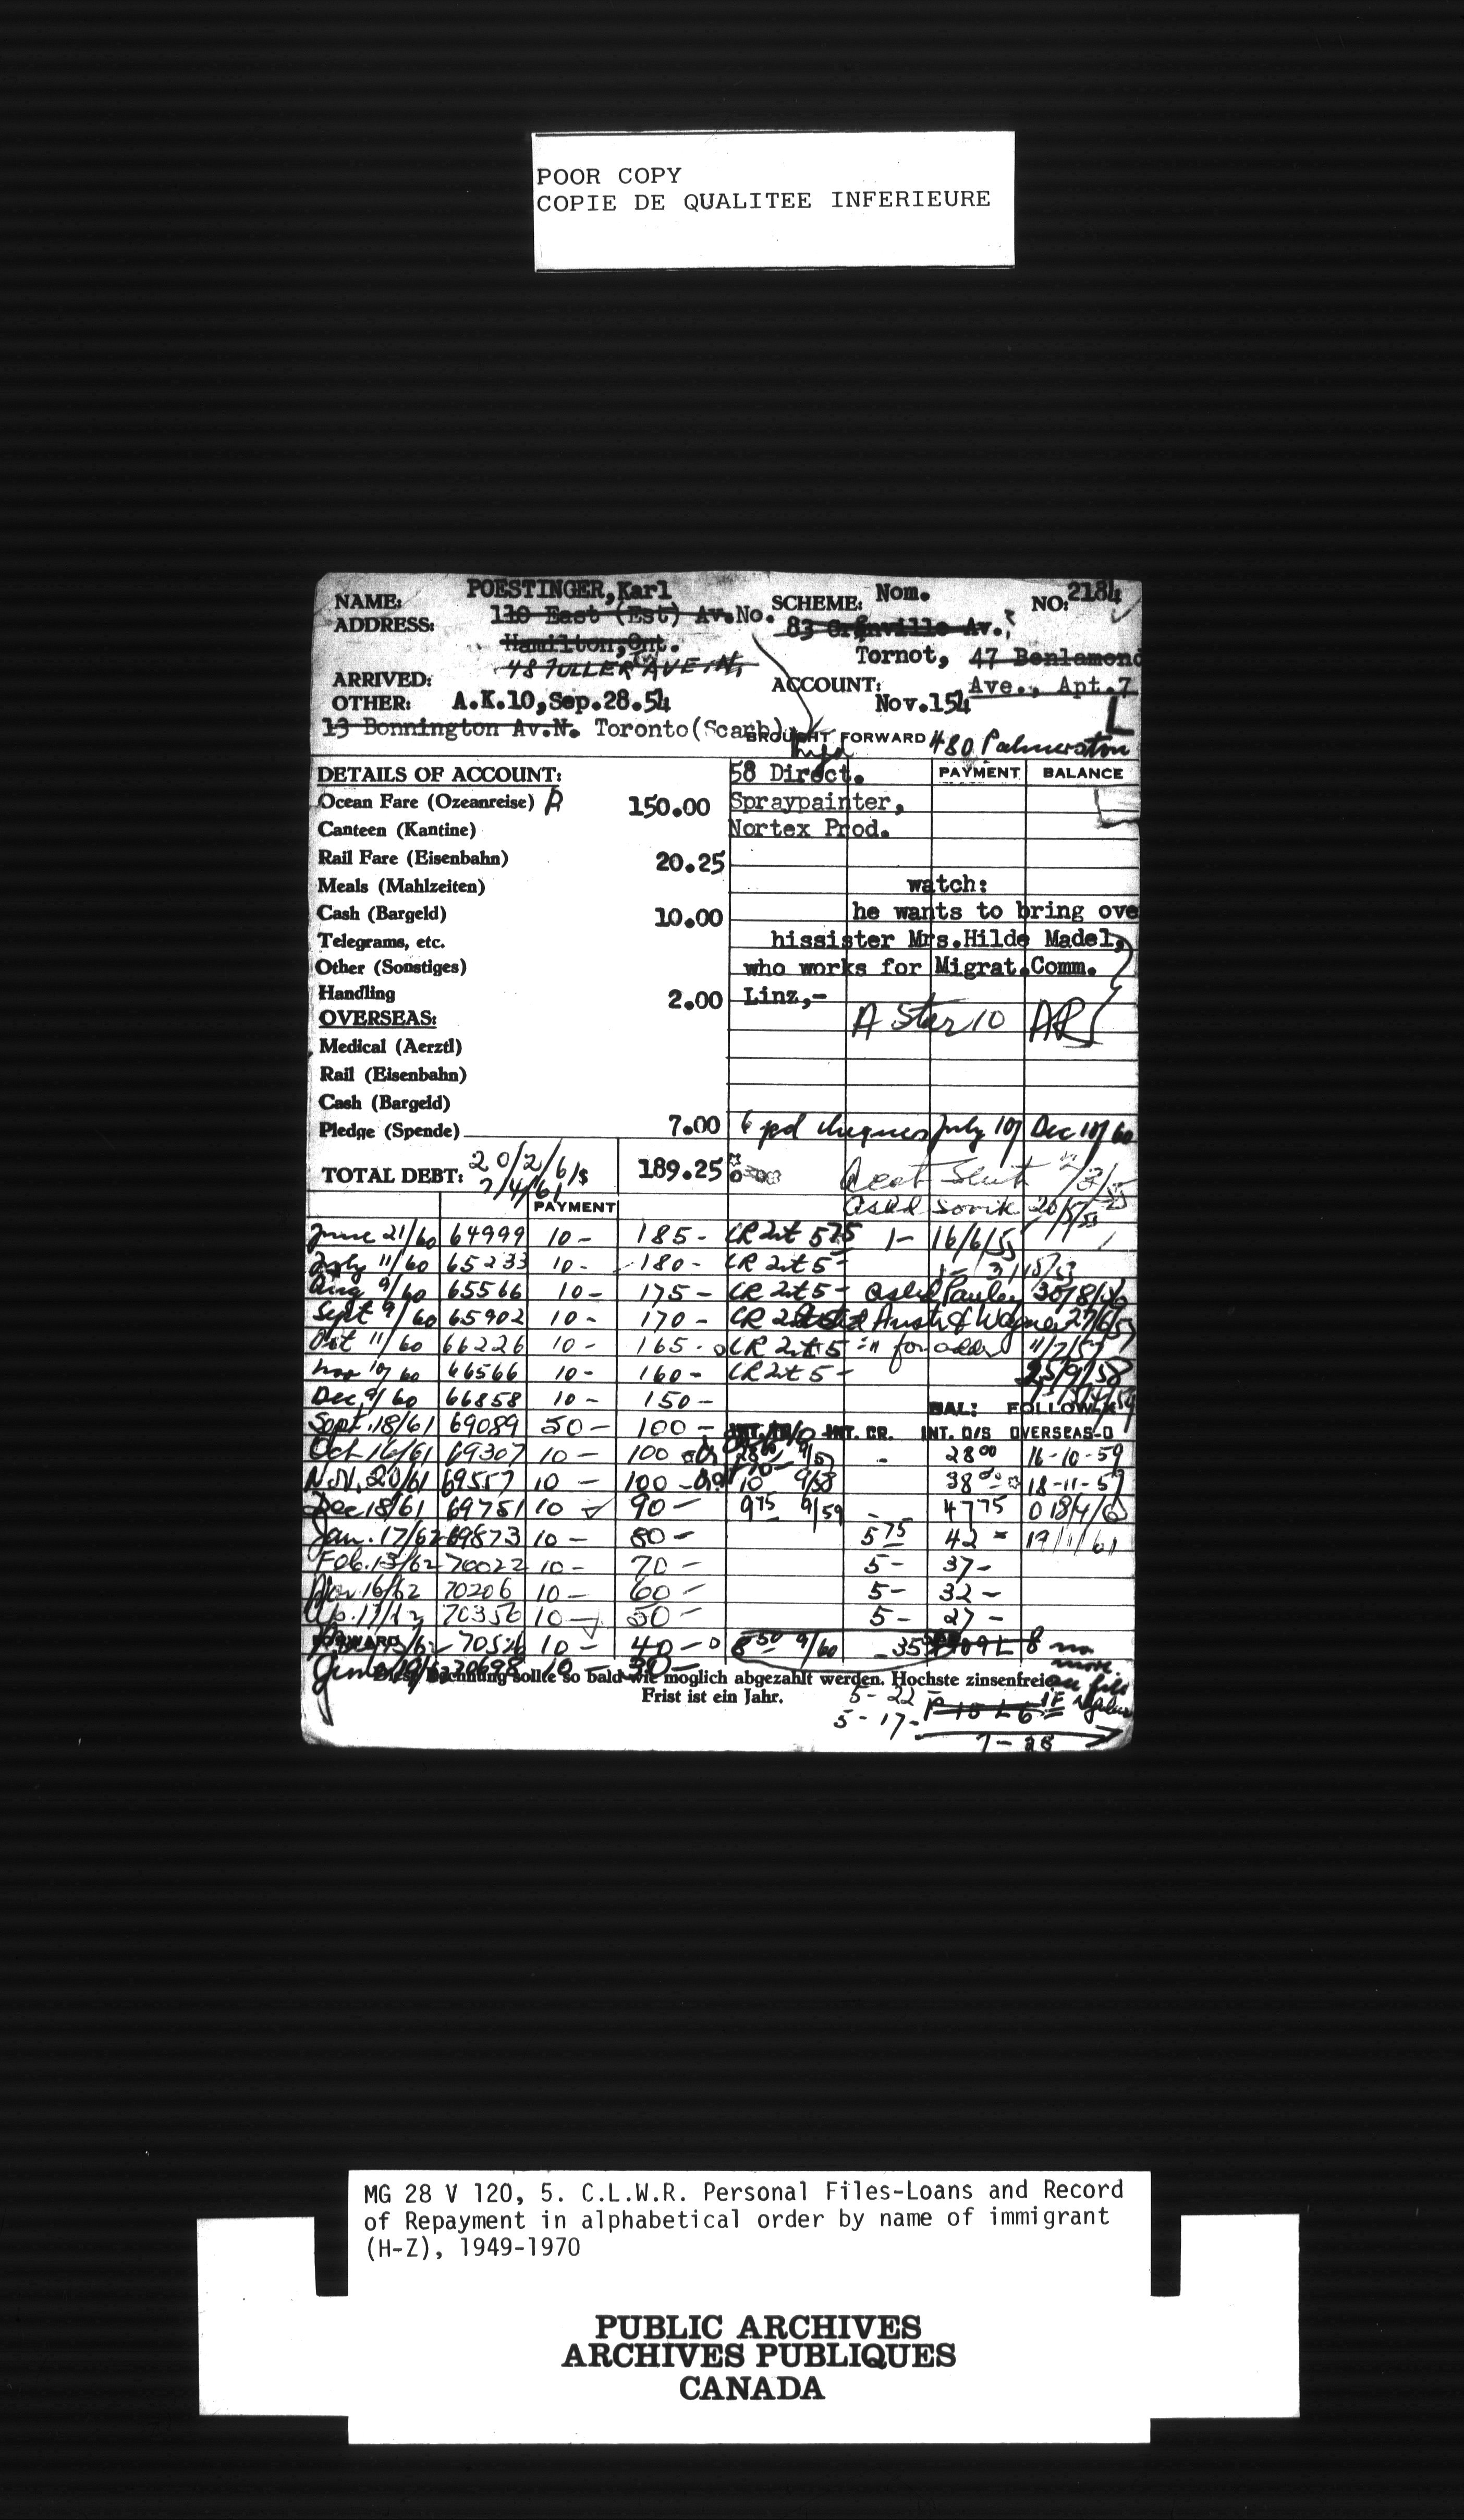 POOR COPY
COPIE DE QUALITEE INFERIEURE
NAME: POESTINGER,Karl SCHEME: Nom. NO: 2184
ADDRESS: 110 East (Est) Av.No. 83 Grenville Av.,
Hamilton,Ont.
48 FULLER AVE, N, Tornot, 47 Benlamond
ARRIVED: ACCOUNT: Ave., Apt.7
OTHER: A.K.10,Sep.28.54 Nov.154 L
13 Bonnington Av.N. Toronto(Scarb) BROUGHT FORWARD 480 Palmerston
DETAILS OF ACCOUNT: 58 Direct. PAYMENT BALANCE
Ocean Fare (Ozeanreise) R 150.00 Spraypainter,
Canteen (Kantine) Nortex Prod.
Rail Fare (Eisenbahn) 20.25
Meals (Mahlzeiten) watch:
Cash (Bargeld) 10.00 he wants to bring ove
Telegrams, etc. hissister Mrs.Hilde Madel,
Other (Sonstiges) who works for Migrat.Comm.
Handling 2.00 Linz,-
OVERSEAS: A Star 10 AR
Medical (Aerztl)
Rail (Eisenbahn)
Cash (Bargeld)
Pledge (Spende) 7.00 6 pd cheques July 10/ Dec 10/60
TOTAL DEBT: 20/2/61 $ 189.25
7/4/61
PAYMENT Asked 20/5/55
June 21/60 64999 10- 185- CR Int 575 1- 16/6/55
July 11/60 65233 10- 180- CR Int 5-
Aug 9/60 65566 10- 175- CR Int 5- Asked 30/8/56
Sept 9/60 65902 10- 170- CR & Wagner 27/6/57
Oct 11/60 66226 10- 165- CR Int 5- for addr 11/7/57
Nov 10/60 66566 10- 160- CR Int 5- 25/9/58
Dec 9/60 66858 10- 150- BAL: FOLLOW
Sept.18/61 69089 50- 100- INT. CR. INT. O/S OVERSEAS-D
Oct 16/61 69307 10- 100 9/57 - 28 00 16-10-59
Nov. 20/61 69557 10- 100 10 9/58 38 18-11-59
Dec 18/61 69751 10 90- 9 75 9/59 - 47 75 0 18/4/60
Jan. 17/62 69873 10- 80- 5 75 42 - 17/1/61
Feb. 13/62 70022 10- 70- 5- 37-
Mar 16/62 70206 10- 60- 5- 32-
Ap. 17/62 70356 10- 50- 5- 27-
FORWARD 10- 40- 8 50 9/60 35 8 no
June 70698 10 30- more
Rechnung sollte so bald wie moglich abgezahlt werden. Hochste zinsenfreie
Frist ist ein Jahr.
5- 22-
5- 17-
MG 28 V 120, 5. C.L.W.R. Personal Files-Loans and Record
of Repayment in alphabetical order by name of immigrant
(H-Z), 1949-1970
PUBLIC ARCHIVES
ARCHIVES PUBLIQUES
CANADA